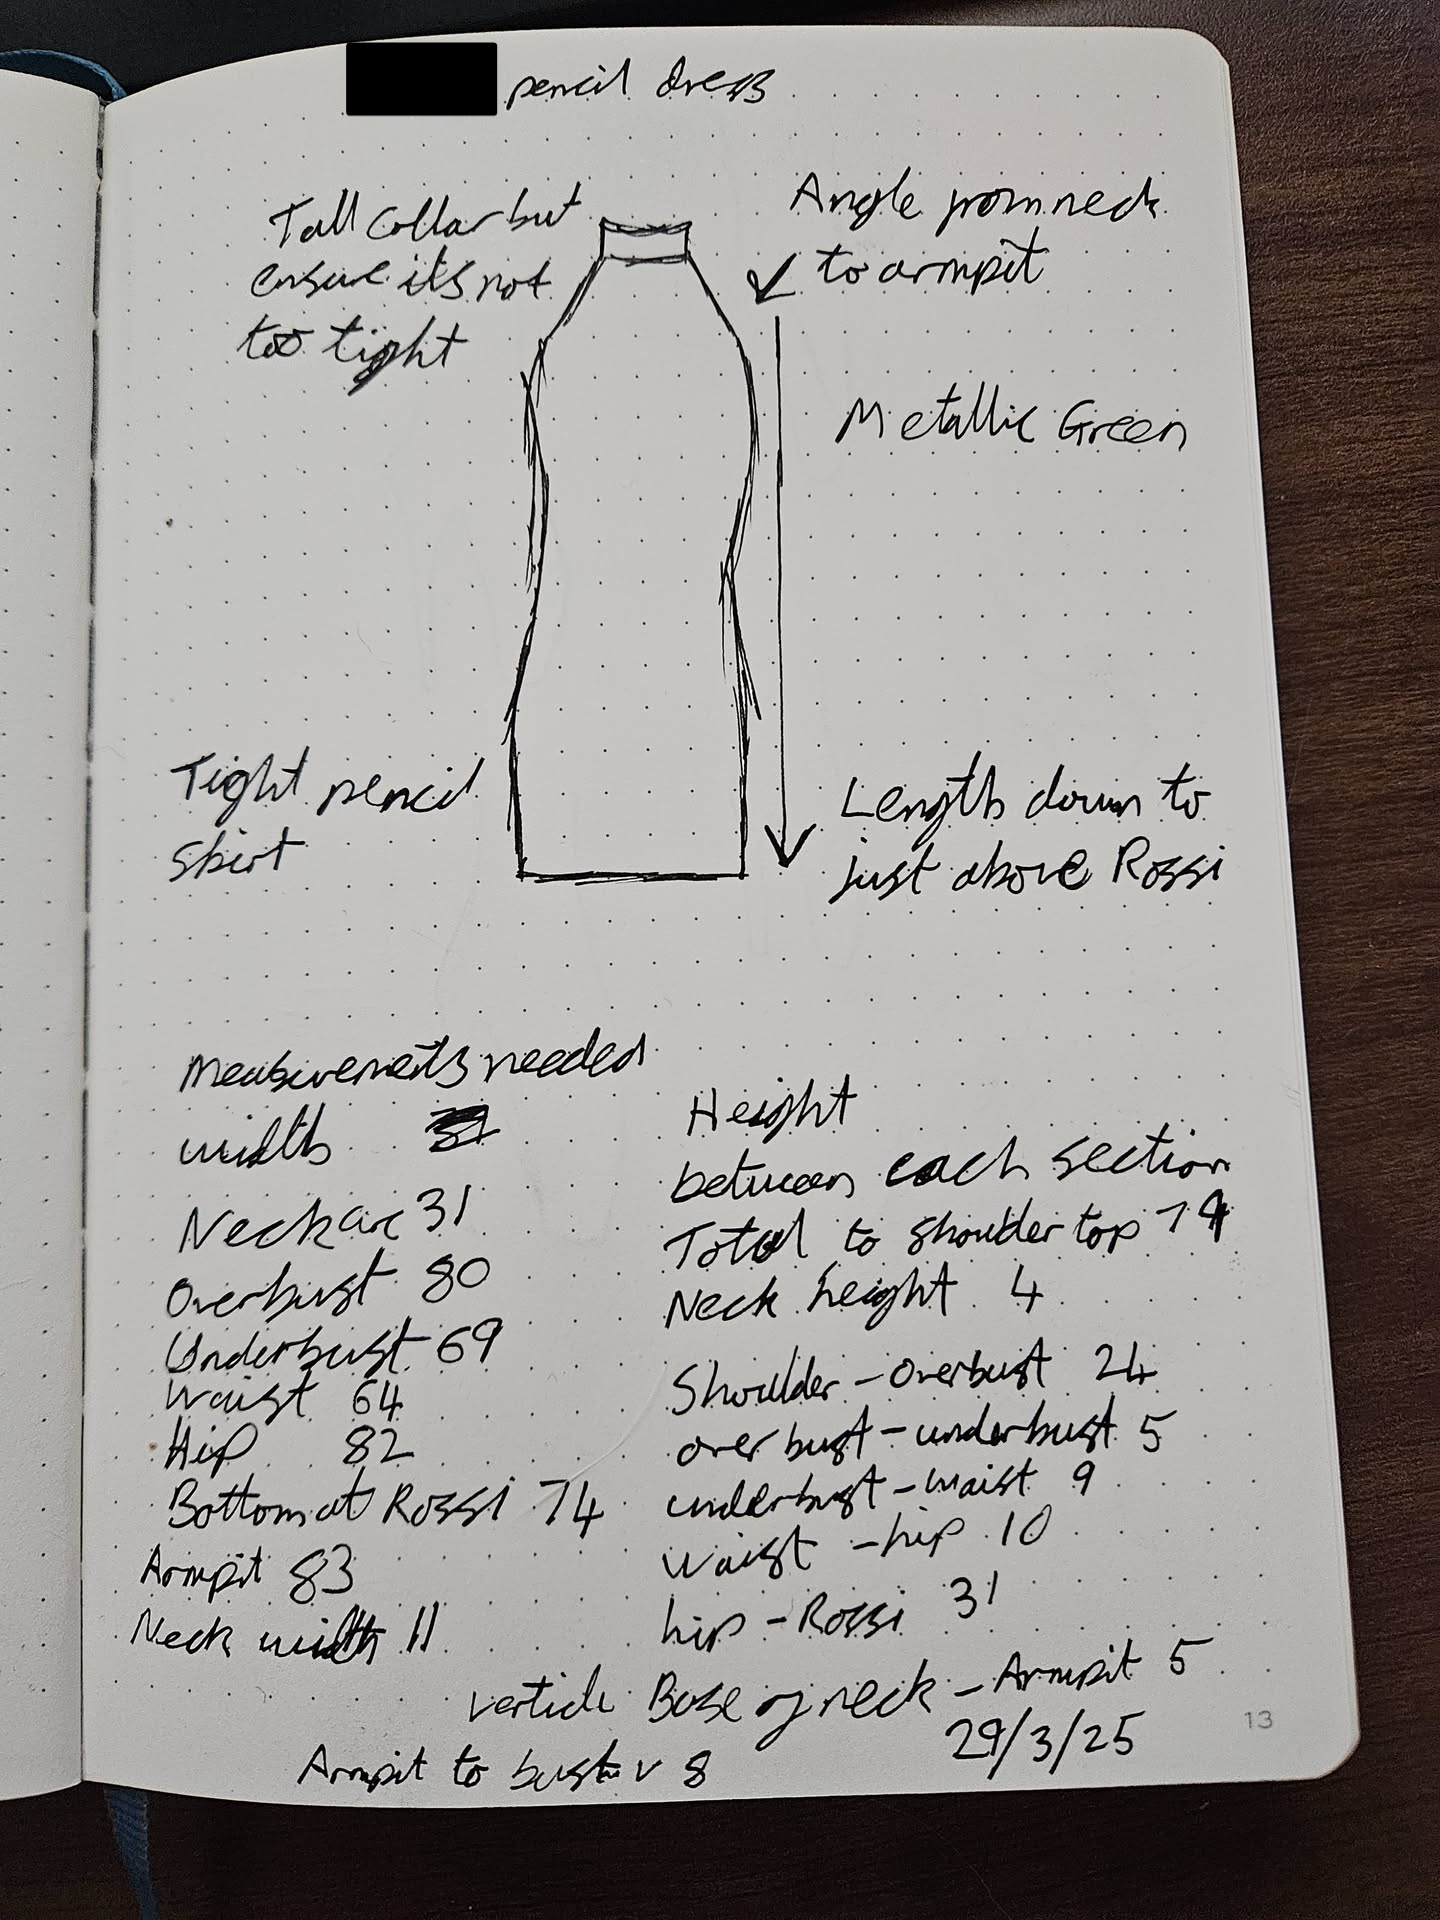 pencil dress
Tall Collar but
ensure its not
too tight
Angle from neck
to armpit
Metallic Green
Tight pencil
skirt
Length down to
just above Rossi
Measurements needed
width
Neck arc 31
Overbust 80
Underbust 69
Waist 64
Hip 82
Bottom at Rossi 74
Armpit 83
Neck width 11
Height
between each section
Total to shoulder top 79
Neck height 4
Shoulder - Overbust 24
over bust - underbust 5
underbust - waist 9
Waist - hip 10
hip - Rossi 31
verticle Base of neck - Armpit 5
29/3/25
13
Armpit to bust v 8